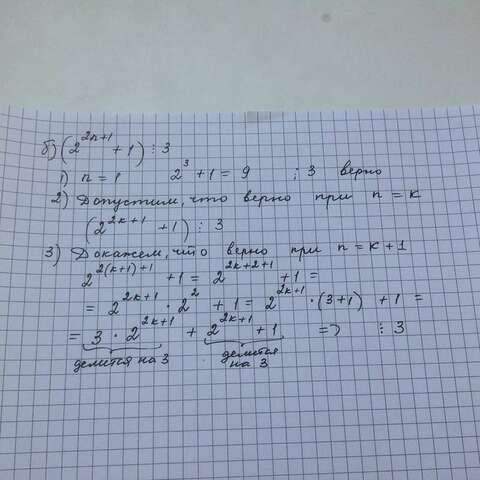 б) (2^{2n+1} + 1) ⋮ 3
1) n = 1 2^3 + 1 = 9 ⋮ 3 верно
2) Допустим, что верно при n = k
(2^{2k+1} + 1) ⋮ 3
3) Докажем, что верно при n = k + 1
2^{2(k+1)+1} + 1 = 2^{2k+2+1} + 1 =
= 2^{2k+1} · 2^2 + 1 = 2^{2k+1} · (3+1) + 1 =
= 3 · 2^{2k+1} + 2^{2k+1} + 1 => ⋮ 3
делится на 3 делится
на 3